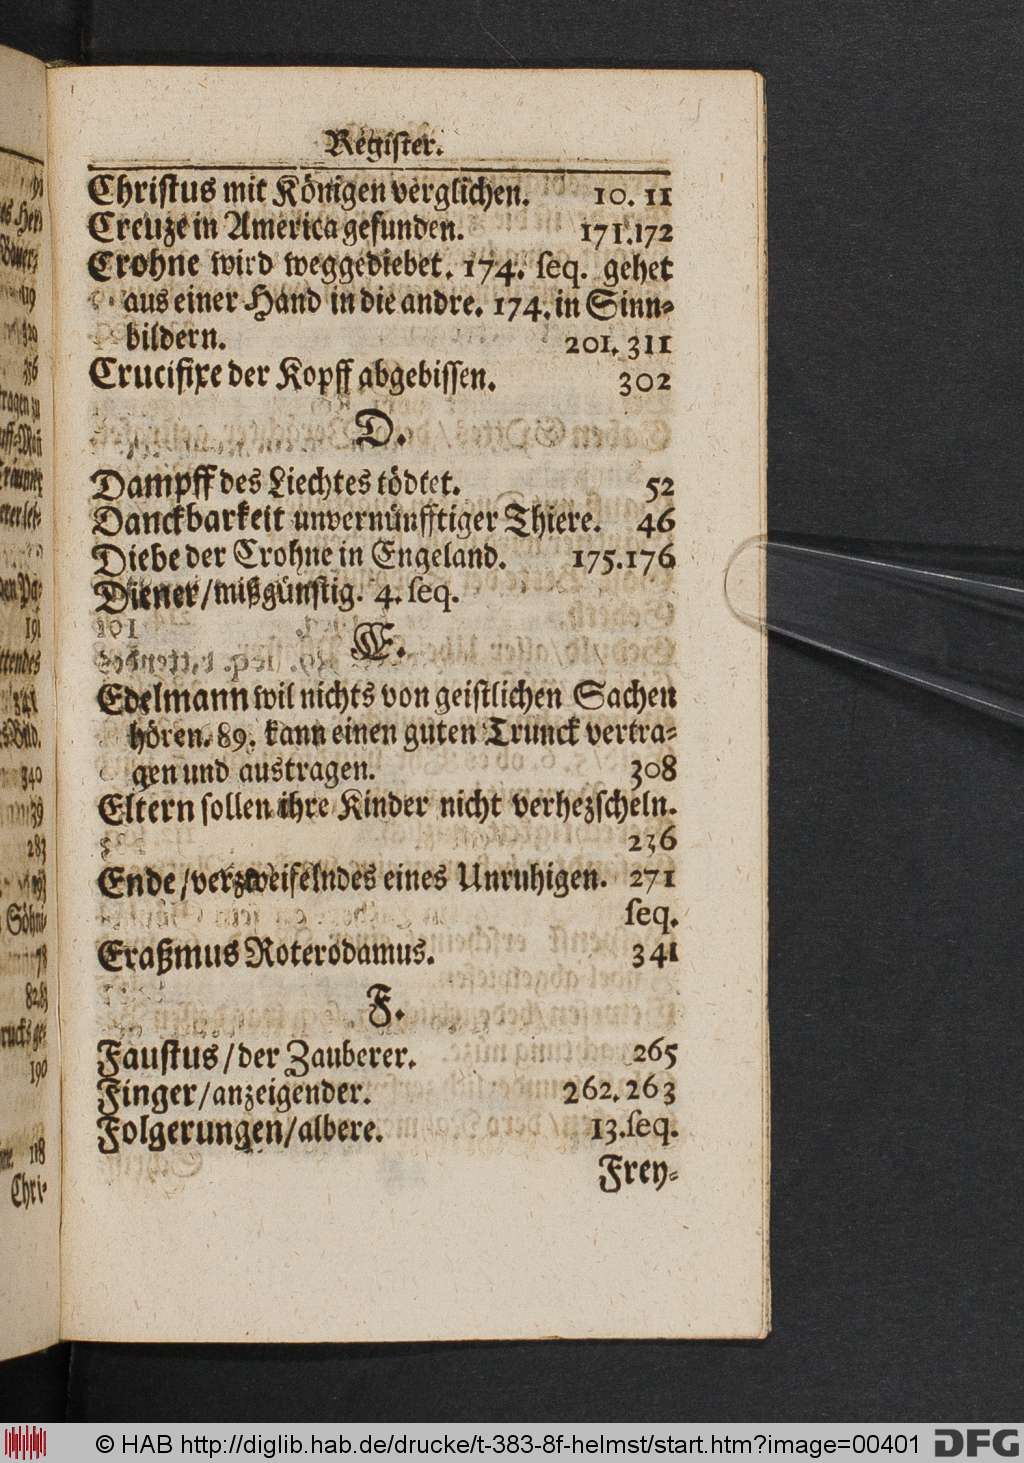 Register.
Christus mit Königen verglichen. 10. 11
Creuze in America gefunden. 171.172
Crohne wird weggediebet. 174. seq. gehet
aus einer Hand in die andre. 174. in Sinn-
bildern. 201. 311
Crucifixe der Kopff abgebissen. 302
D.
Dampff des Liechtes tödtet. 52
Danckbarkeit unvernünfftiger Thiere. 46
Diebe der Crohne in Engeland. 175.176
Diener/mißgünstig. 4. seq.
E.
Edelmann wil nichts von geistlichen Sachen
hören. 89. kann einen guten Trunck vertra-
gen und austragen. 308
Eltern sollen ihre Kinder nicht verhezscheln.
236
Ende/verzweifelndes eines Unruhigen. 271
seq.
Eraßmus Roterodamus. 341
F.
Faustus/der Zauberer. 265
Finger/anzeigender. 262.263
Folgerungen/albere. 13.seq.
Frey-
© HAB http://diglib.hab.de/drucke/t-383-8f-helmst/start.htm?image=00401
DFG